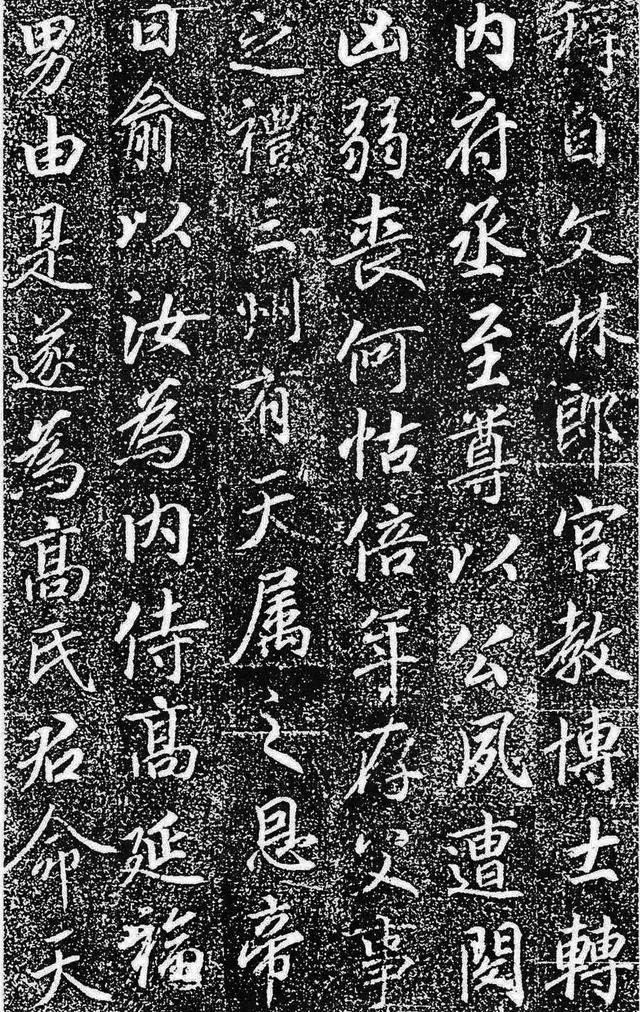 自文林郎宫教博士轉
内府丞至尊以公夙遭閔
凶弱喪何怙倍年存父事
之禮三州有天属之恩帝
曰俞以汝為内侍髙延福
男由是遂為髙氏君命天